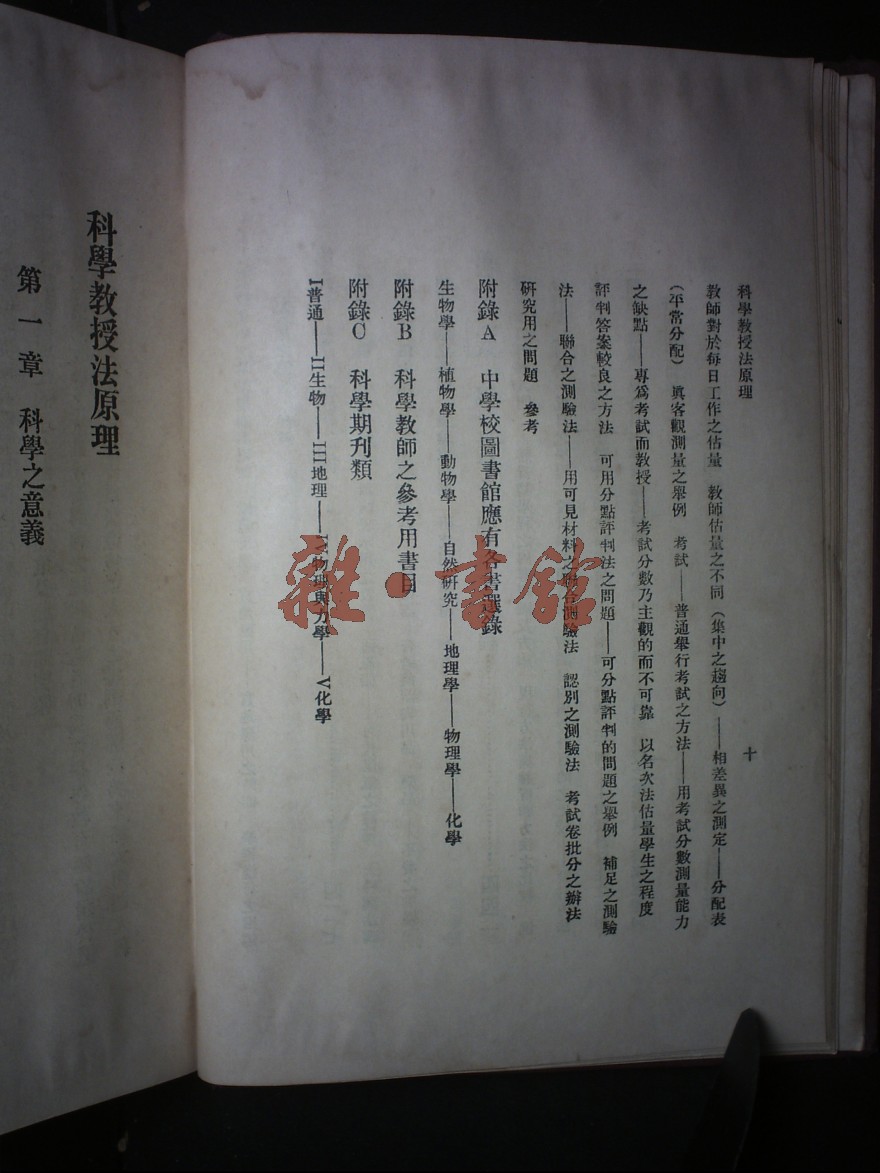 科學教授法原理
十
教師對於每日工作之估量　教師估量之不同（集中之趨向）——相差異之測定——分配表
（平常分配）　眞客觀測量之舉例　考試——普通舉行考試之方法——用考試分數測量能力
之缺點——專爲考試而教授——考試分數乃主觀的而不可靠　以名次法估量學生之程度
評判答案較良之方法　可用分點評判法之問題——可分點評判的問題之舉例　補足之測驗
法——聯合之測驗法——用可見材料之聯合測驗法　認別之測驗法　考試卷批分之辦法
研究用之問題　參考
附錄A　中學校圖書館應有各書選錄
生物學——植物學——動物學——自然研究——地理學——物理學——化學
附錄B　科學教師之參考用書目
附錄C　科學期刊類
I普通——II生物——III地理——IV物理與力學——V化學
科學教授法原理
第一章　科學之意義
雜·書館